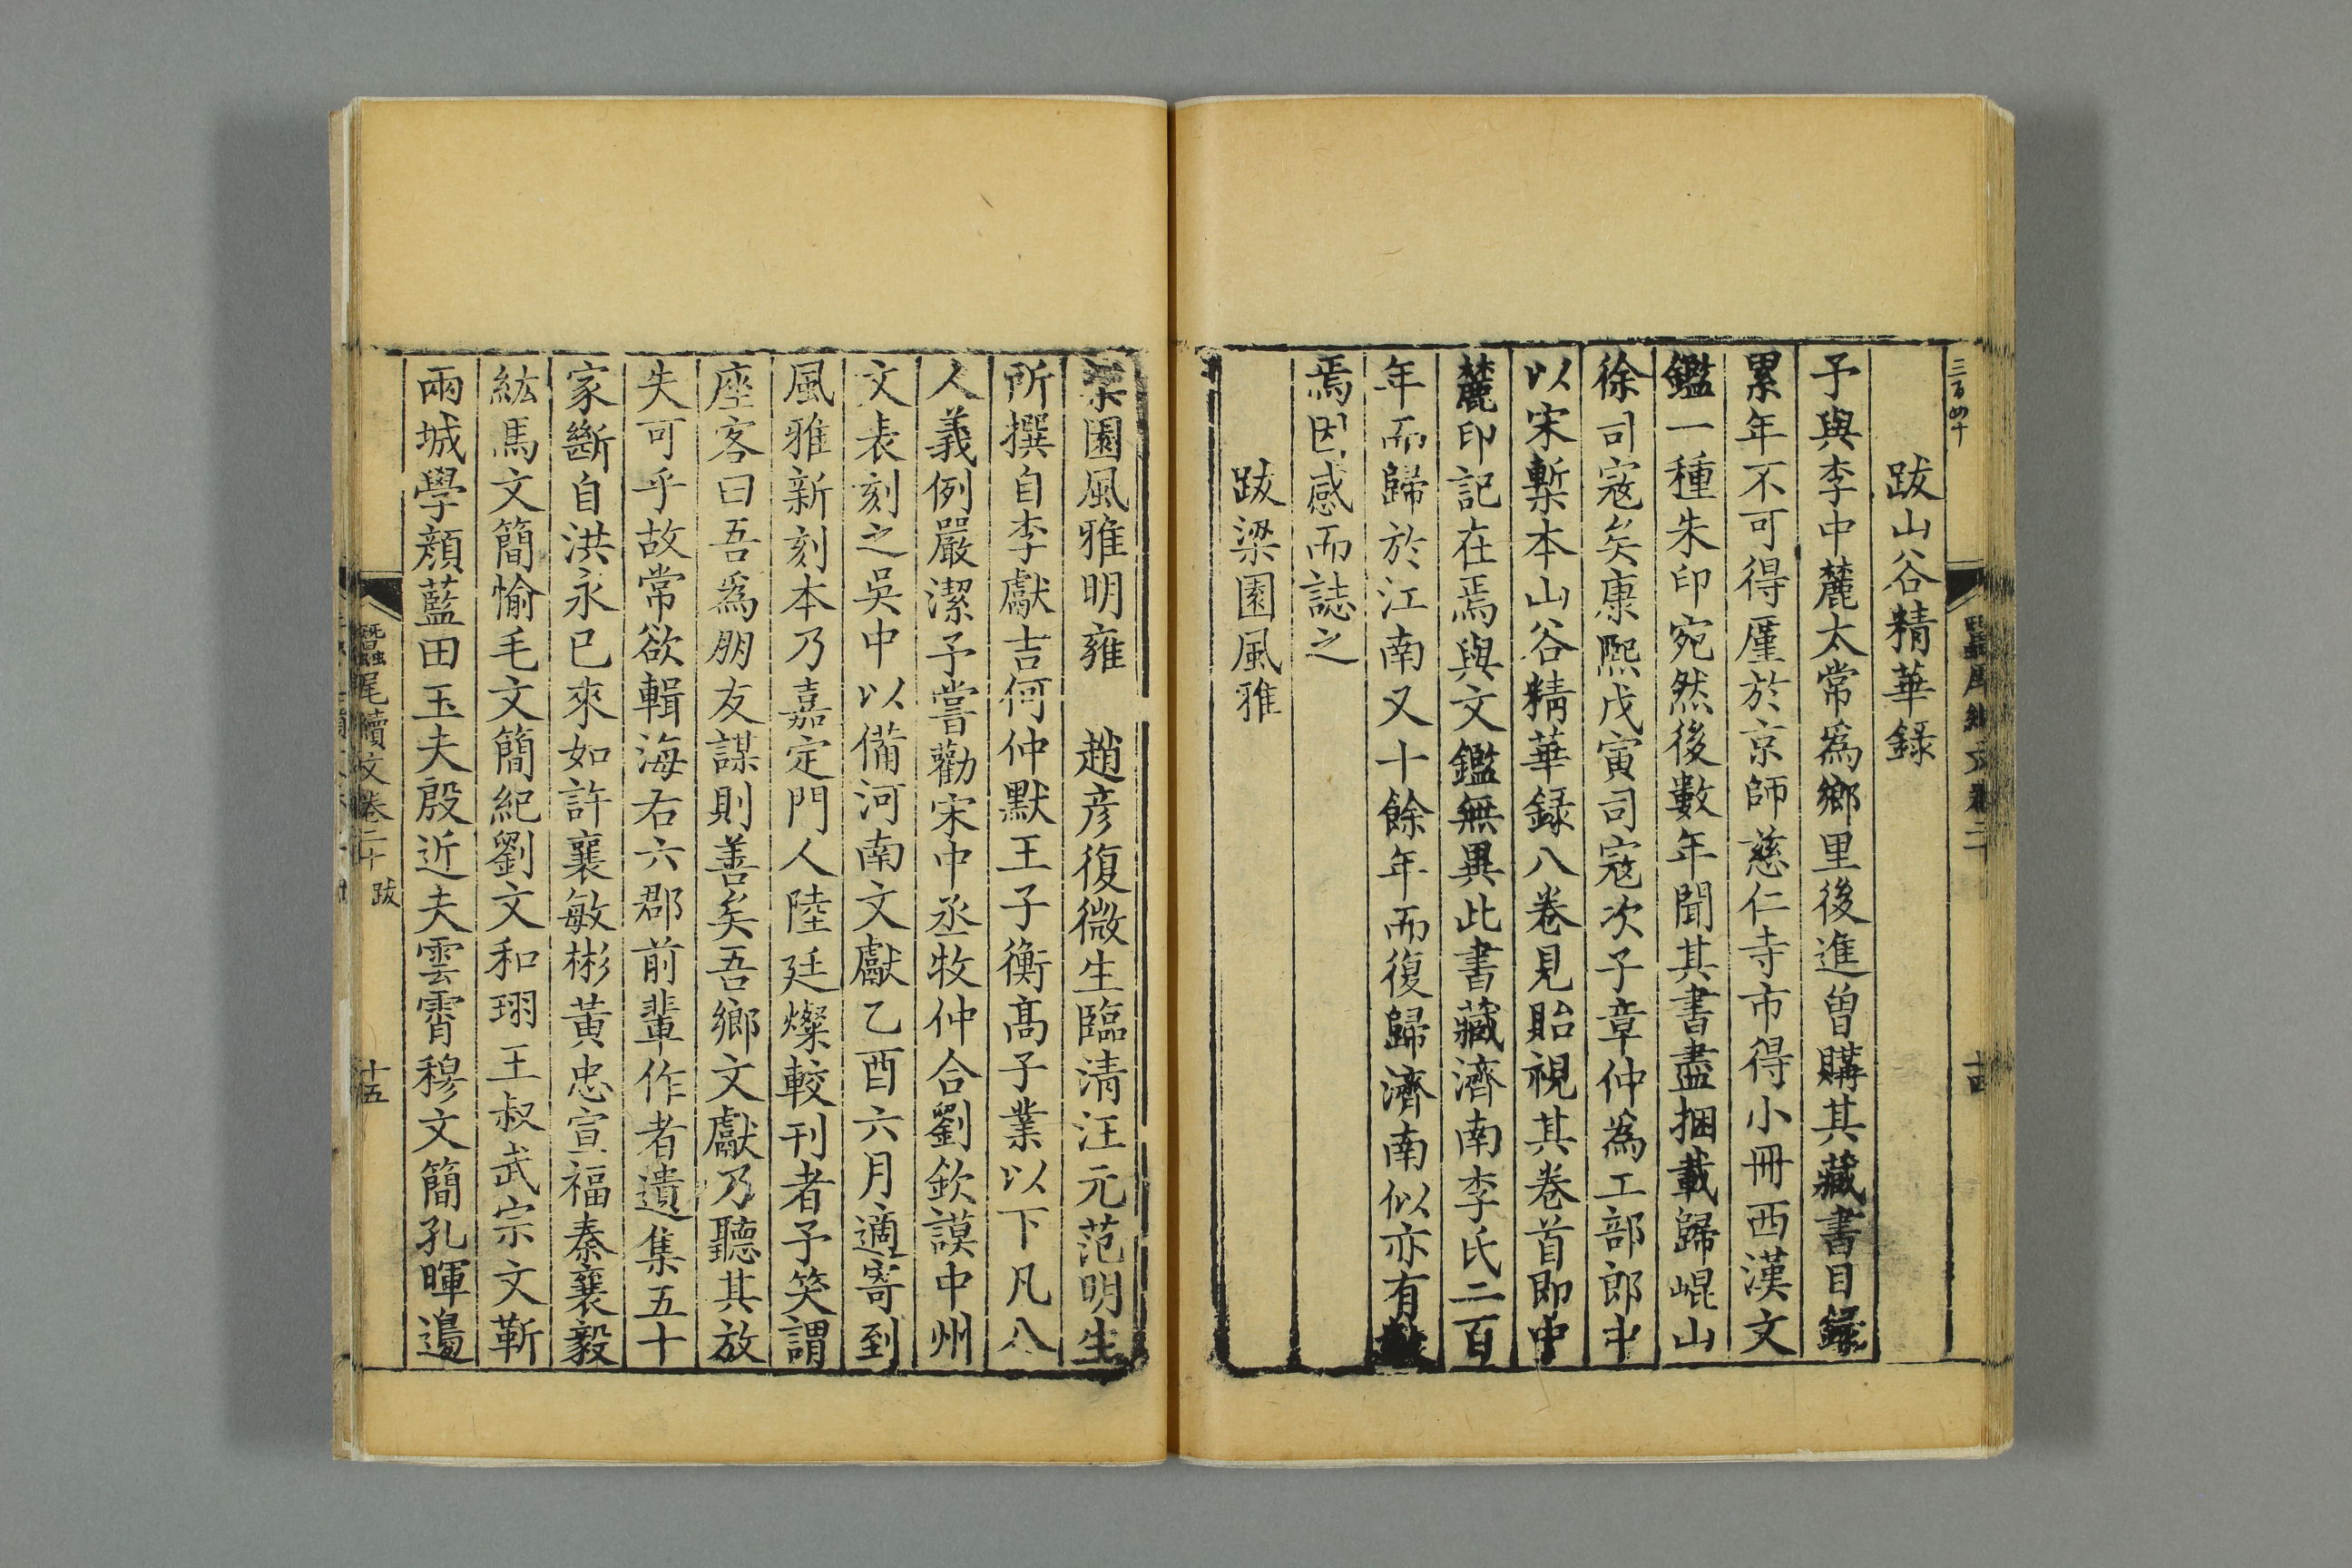 三百四十
跋山谷精華録
予與李中麓太常爲鄉里後進曽購其藏書目録
累年不可得厪於京師慈仁寺市得小冊西漢文
鑑一種朱印宛然後數年聞其書盡捆載歸崐山
徐司寇矣康熙戊寅司寇次子章仲爲工部郎中
以宋槧本山谷精華録八卷見貽視其卷首即中
麓印記在焉與文鑑無異此書藏濟南李氏二百
年而歸於江南又十餘年而復歸濟南似亦有數
焉因感而誌之
跋梁園風雅
十四
梁園風雅明雍 趙彦復微生臨清汪元范明生
所撰自李獻吉何仲默王子衡髙子業以下凡八
人義例嚴潔予嘗勸宋中丞牧仲合劉欽謨中州
文表刻之吳中以備河南文獻乙酉六月適寄到
風雅新刻本乃嘉定門人陸廷燦較刊者予笑謂
座客曰吾爲朋友謀則善矣吾鄉文獻乃聽其放
失可乎故常欲輯海右六郡前輩作者遺集五十
家斷自洪永已來如許襄敏彬黃忠宣福秦襄毅
紘馬文簡愉毛文簡紀劉文和珝王叔武宗文靳
兩城學顔藍田玉夫殷近夫雲霄穆文簡孔暉邉
蠶尾續文卷二十 跋
十五